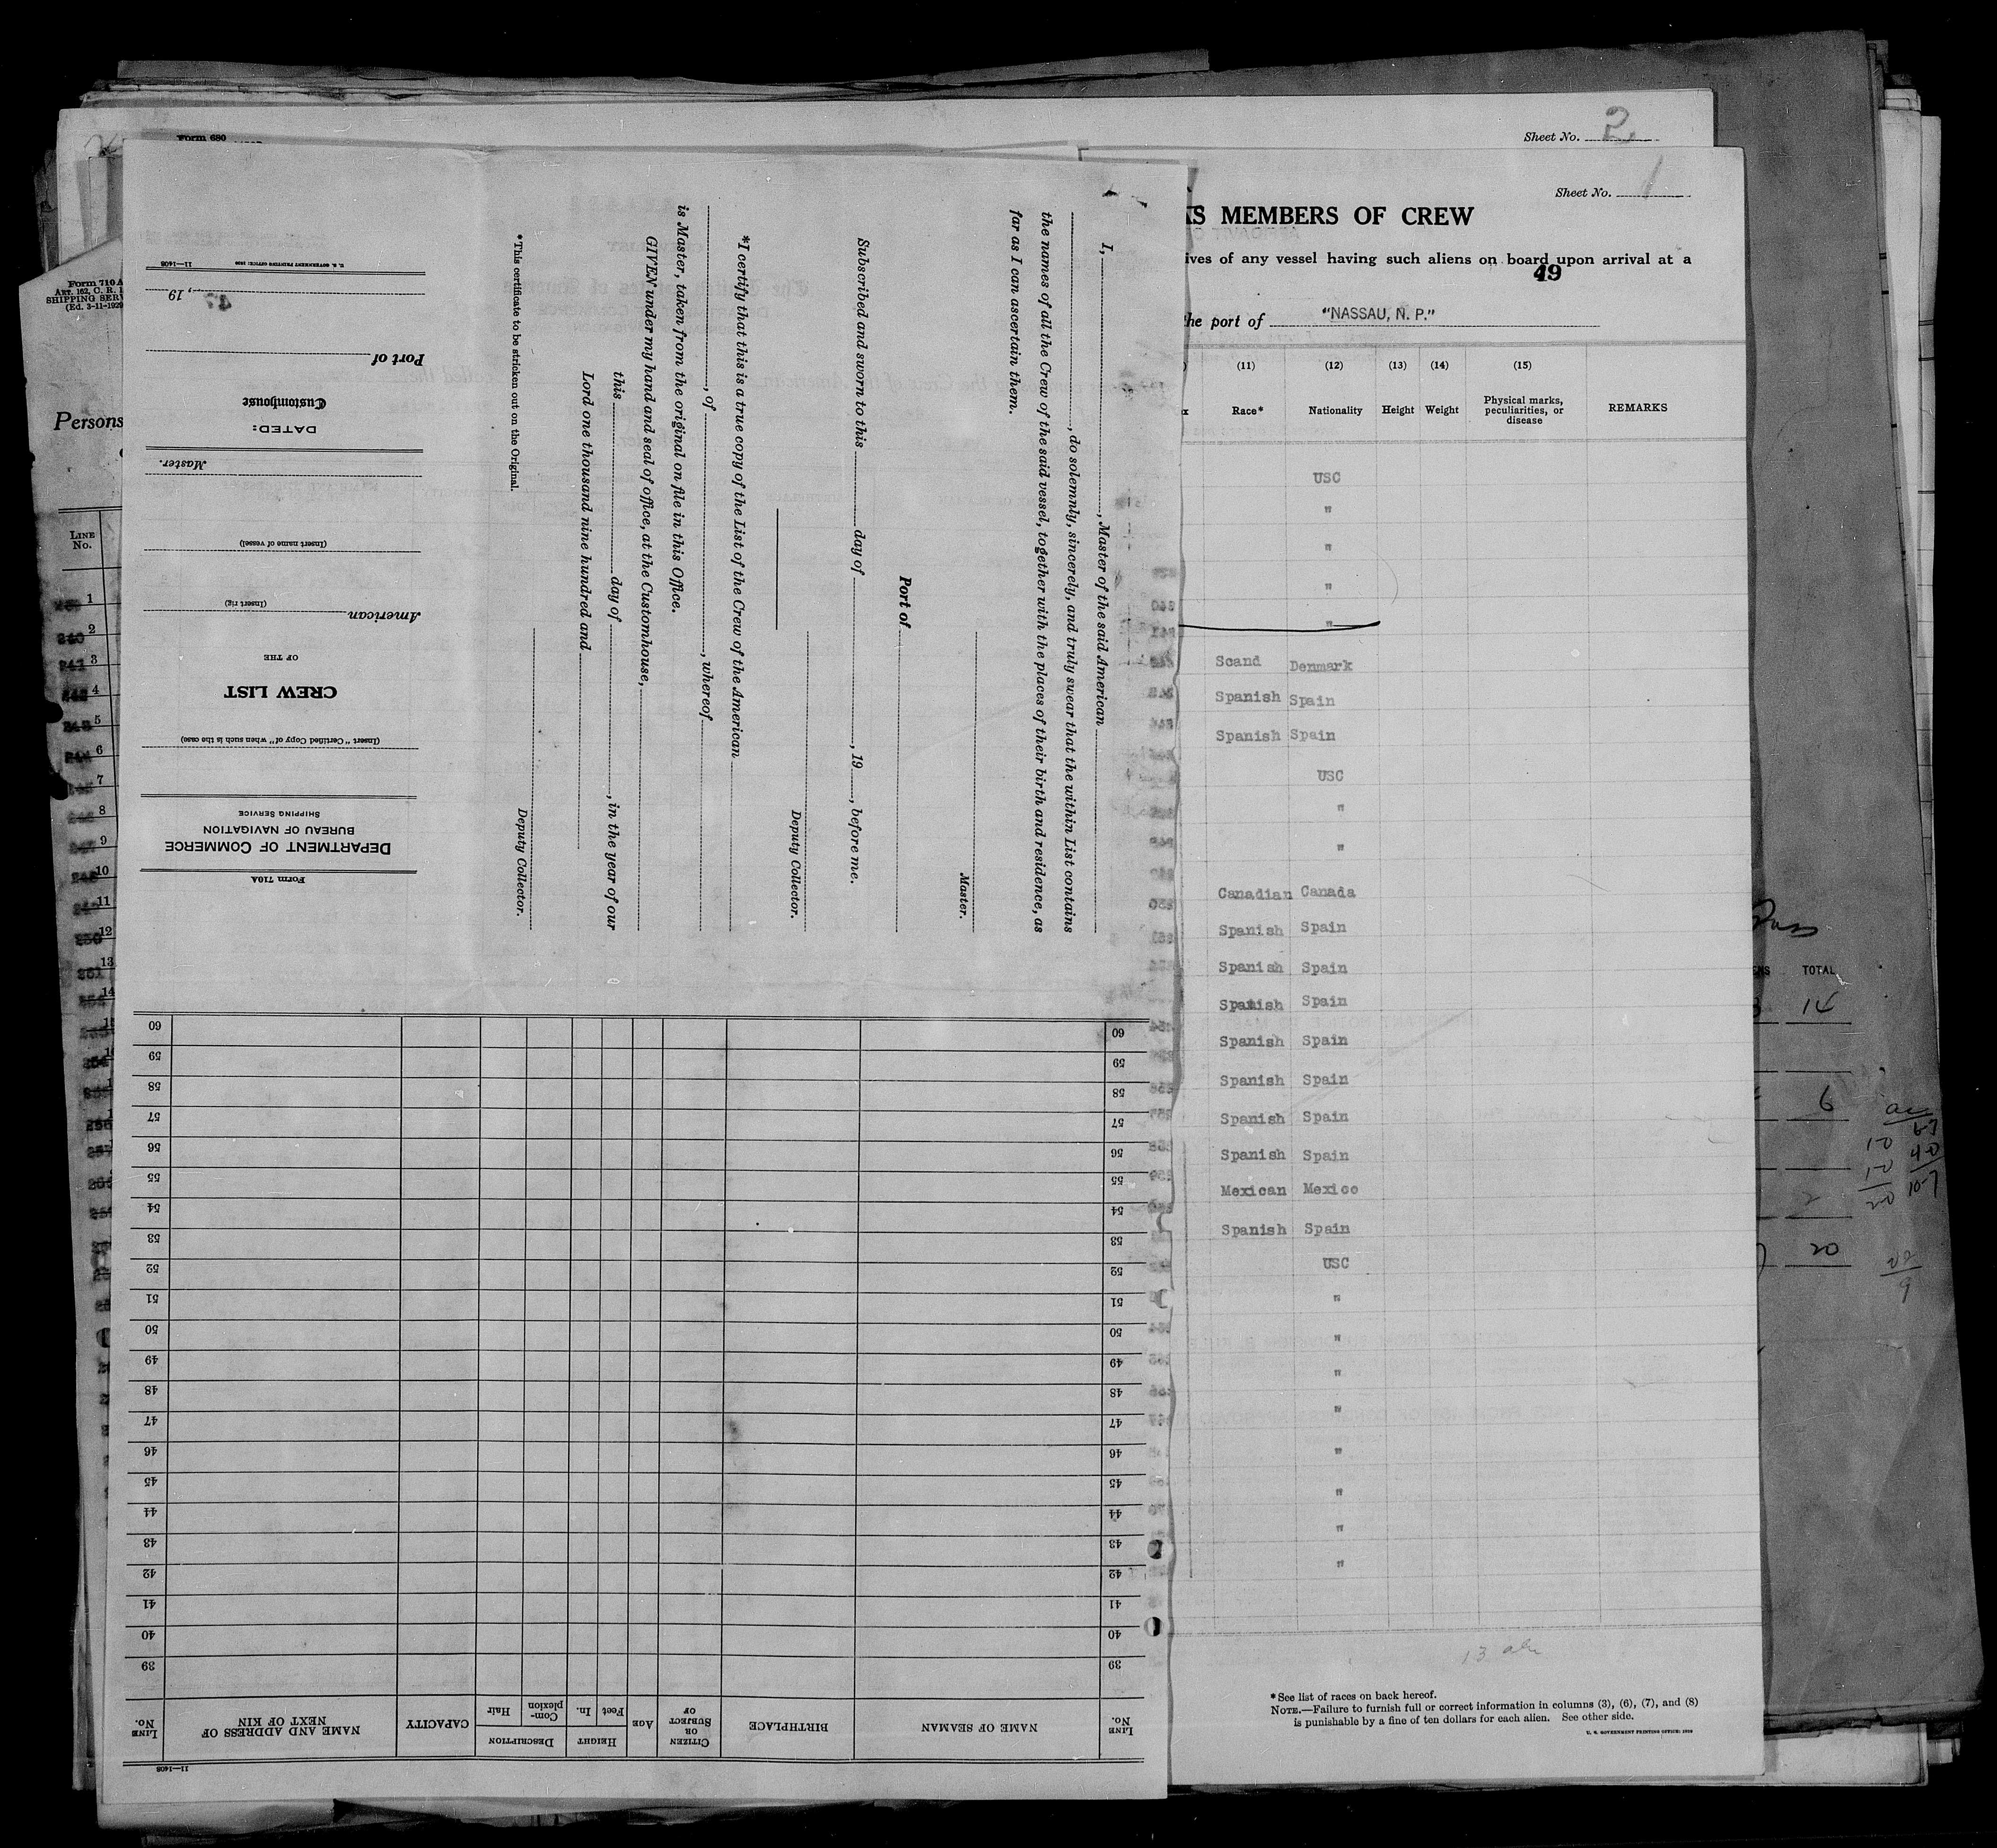 Form 680
Sheet No. 2
Sheet No. 1
AS MEMBERS OF CREW
ives of any vessel having such aliens on board upon arrival at a
49
the port of "NASSAU, N. P."
(11) (12) (13) (14) (15)
Race* Nationality Height Weight Physical marks, peculiarities, or disease REMARKS
USC
"
"
"
"
Scand Denmark
Spanish Spain
Spanish Spain
USC
"
"
Canadian Canada
Spanish Spain
Spanish Spain
Spanish Spain
Spanish Spain
Spanish Spain
Spanish Spain
Spanish Spain
Mexican Mexico
Spanish Spain
USC
"
"
"
"
"
"
"
"
*See list of races on back hereof.
NOTE.—Failure to furnish full or correct information in columns (3), (6), (7), and (8)
is punishable by a fine of ten dollars for each alien. See other side.
U. S. GOVERNMENT PRINTING OFFICE:
TOTAL
14
6
2
20
Form 710A
ART. 162, C. R.
SHIPPING SERV
(Ed. 3-11-1929
Persons
LINE No.
1
2
3
4
5
6
7
8
9
10
11
12
13
14
I, , Master of the said American
, do solemnly, sincerely, and truly swear that the within List contains
the names of all the Crew of the said vessel, together with the places of their birth and residence, as
far as I can ascertain them.
Master.
Port of
Subscribed and sworn to this day of , 19 , before me.
Deputy Collector.
*I certify that this is a true copy of the List of the Crew of the American
, of , whereof
is Master, taken from the original on file in this Office.
GIVEN under my hand and seal of office, at the Customhouse,
this day of , in the year of our
Lord one thousand nine hundred and
Deputy Collector.
*This certificate to be stricken out on the Original.
Form 710A
DEPARTMENT OF COMMERCE
BUREAU OF NAVIGATION
SHIPPING SERVICE
(Insert "Certified Copy of" when such is the case)
CREW LIST
OF THE
American
(Insert rig)
(Insert name of vessel)
Master.
DATED:
Customhouse
Port of
, 19
U. S. GOVERNMENT PRINTING OFFICE 11—1408
11—1408
LINE No. NAME OF SEAMAN BIRTHPLACE CITIZEN OR SUBJECT OF AGE HEIGHT Feet In. DESCRIPTION OR Complexion Hair CAPACITY NAME AND ADDRESS OF NEXT OF KIN LINE No.
39 39
40 40
41 41
42 42
43 43
44 44
45 45
46 46
47 47
48 48
49 49
50 50
51 51
52 52
53 53
54 54
55 55
56 56
57 57
58 58
59 59
60 60